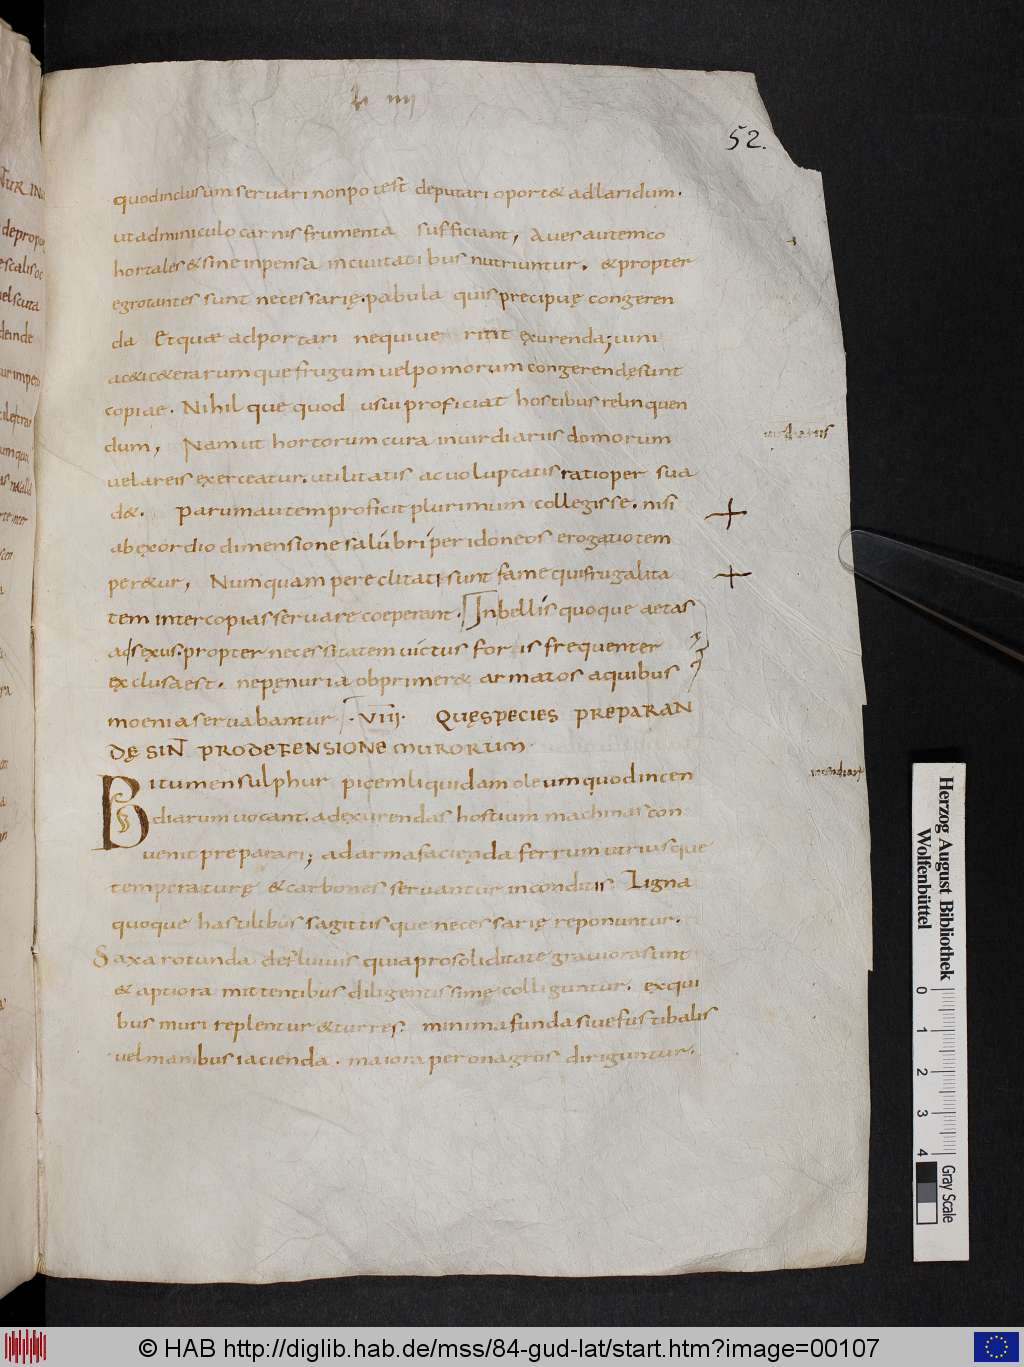 L IIII
52.
quodindusum servari nonpotest deputari oport& adlaridum.
utadminiculo carnis frumenta sufficiant, Aves autem co
hortales & sine inpensa incivitatibus nutriuntur. & propter
egrotantes sunt necessarię. pabula quis precipuę congeren
da Et quae adportari nequive rint exurenda; vini
ac&ic&erarumque frugum velpomorum congerendęsunt
copiae. Nihil que quod usui proficiat hostibus relinquen
dum, Nam ut hortorum cura invirdiariis domorum
velareis exerceatur. utilitatis acvoluptatis ratio per sua
d&. Parumautem proficit plurimum collegisse. nisi
abexordio dimensione salubri per idoneos erogatio tem
per&ur, Numquam pereclitati sunt fame quifrugalita
tem intercopias servare coeperant. Inbellis quoque aetas
adsexus. propter necessitatem victus for is frequenter
exclusaest. nepęnuria obprimer& armatos aquibus
moenia servabantur .VIII. QUĘSPECIES PREPARAN
DĘ SINT PRODEFENSIONE MURORUM
Bitumen sulphur picem liquidam oleum quodincen
diarum vocant. adexurendas hostium machinas con
venit preparari; adarmafacienda ferrum utriusque
temperaturę & carbones servantur inconditis Ligna
quoque hastilibus sagittisque necessarię reponuntur.
Saxa rotunda defluviis quiaprosoliditate graviorasunt
& aptiora mittentibus diligentissimę colliguntur. exqui
bus muri replentur & turres. minima funda sive fustibalis
vel manibus iacienda. maiora per onagros diriguntur.
Herzog August Bibliothek
Wolfenbüttel
0 1 2 3 4
Gray Scale
© HAB http://diglib.hab.de/mss/84-gud-lat/start.htm?image=00107